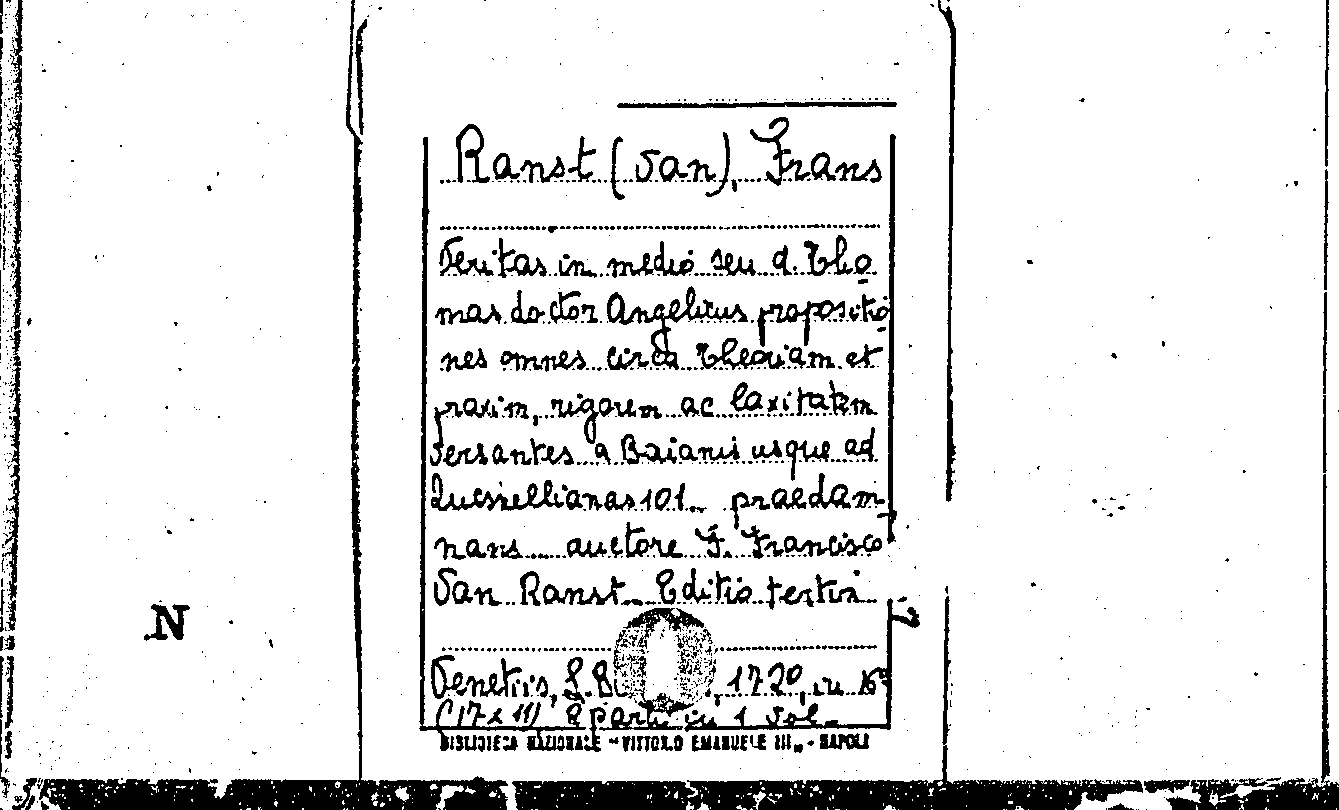 Ranst (Van), Frans
Veritas in medio seu d. Tho
mas doctor Angelicus propositio
nes omnes circa theoriam et
praxim, rigorem ac laxitatem
versantes a Baianis usque ad
Quesnellianas 101.. praedam-
nans... auctore F. Francisco
Van Ranst.. Editio tertia
Venetiis, 1720, in 16°
(17 x 11) 2 parti in 1 vol.
BIBLIOTECA NAZIONALE "VITTORIO EMANUELE III" - NAPOLI
N